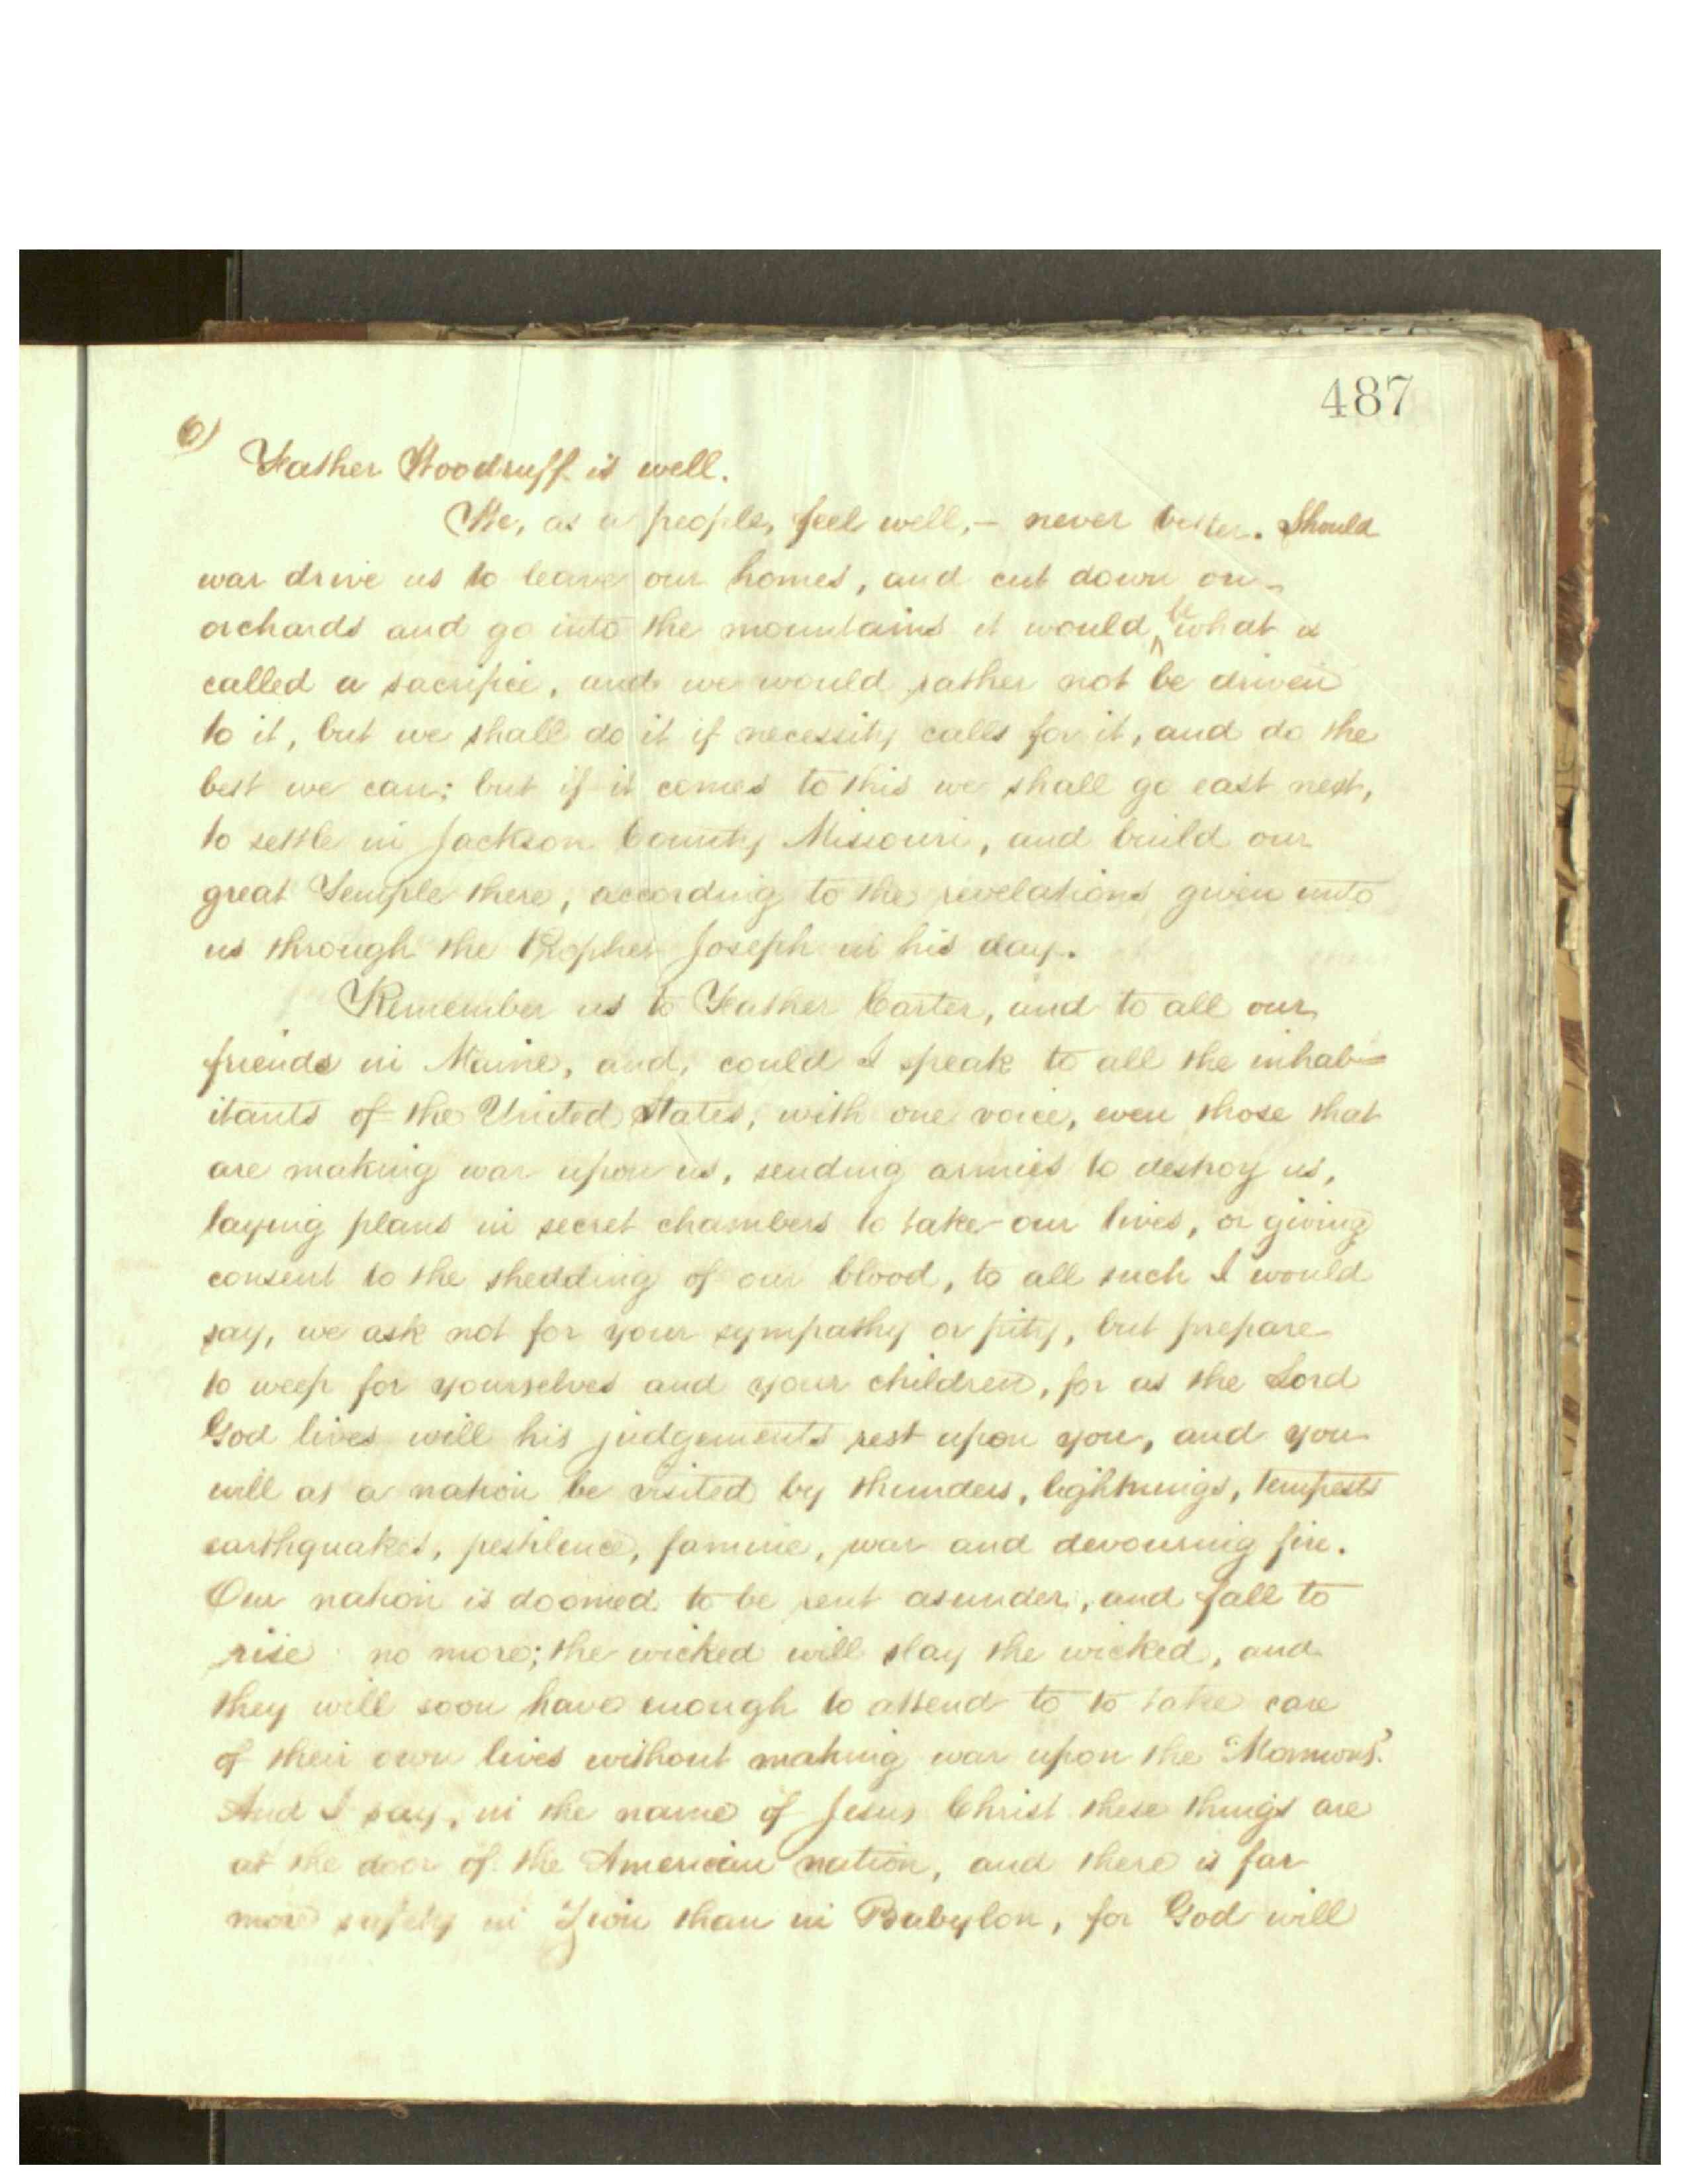 487
6)
Father Woodruff is well.
We, as a people, feel well,— never better. Should
war drive us to leave our homes, and cut down our
orchards and go into the mountains it would be what is
called a sacrifice, and we would rather not be driven
to it, but we shall do it if necessity calls for it, and do the
best we can; but if it comes to this we shall go east next,
to settle in Jackson County Missouri, and build our
great Temple there, according to the revelations given unto
us through the Prophet Joseph in his day.
Remember us to Father Carter, and to all our
friends in Maine, and, could I speak to all the inhab-
itants of the United States, with one voice, even those that
are making war upon us, sending armies to destroy us,
laying plans in secret chambers to take our lives, or giving
consent to the shedding of our blood, to all such I would
say, we ask not for your sympathy or pity, but prepare
to weep for yourselves and your children, for as the Lord
God lives will his judgements rest upon you, and you
will as a nation be visited by thunders, lightnings, tempests
earthquakes, pestilence, famine, war and devouring fire.
Our nation is doomed to be rent asunder, and fall to
rise no more; the wicked will slay the wicked, and
they will soon have enough to attend to to take care
of their own lives without making war upon the "Mormons".
And I say, in the name of Jesus Christ these things are
at the door of the American nation, and there is far
more safety in Zion than in Babylon, for God will